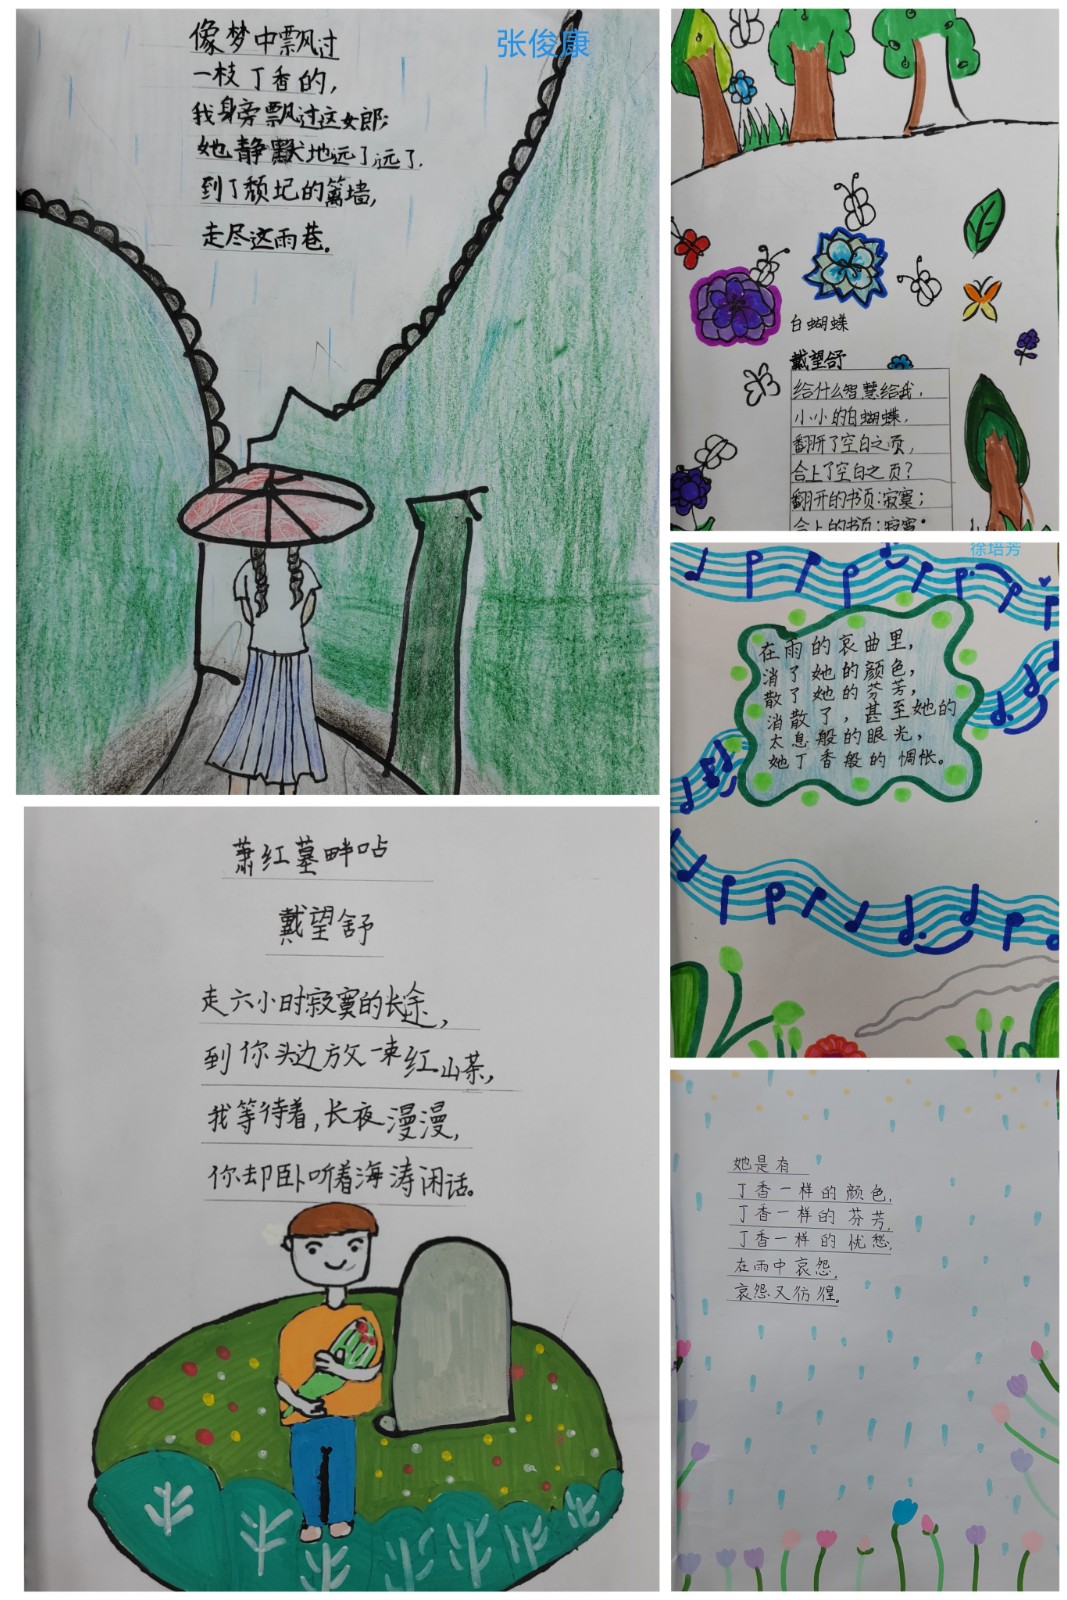 像梦中飘过
一枝丁香的，
我身旁飘过这女郎；
她静默地远了，远了，
到了颓圮的篱墙，
走尽这雨巷。
张俊康
白蝴蝶
戴望舒
给什么智慧给我，
小小的白蝴蝶，
翻开了空白之页，
合上了空白之页？
翻开的书页：寂寞；
合上的书页：寂寞。
徐培芳
在雨的哀曲里，
消了她的颜色，
散了她的芬芳，
消散了，甚至她的
太息般的眼光，
她丁香般的惆怅。
萧红墓畔口占
戴望舒
走六小时寂寞的长途，
到你头边放一束红山茶，
我等待着，长夜漫漫，
你却卧听着海涛闲话。
她是有
丁香一样的颜色，
丁香一样的芬芳，
丁香一样的忧愁，
在雨中哀怨，
哀怨又彷徨。